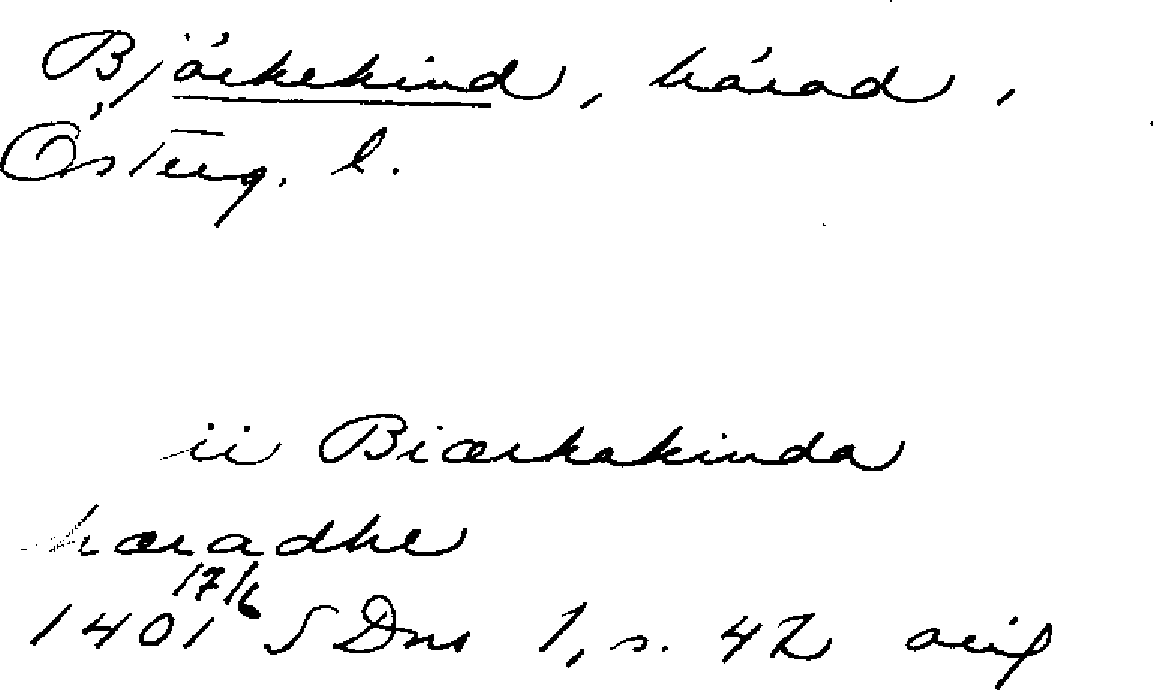 Björkekind, härad,
Österg. l.
ii Biærkakinda
hæradhe
17/6
1401 SDns 1, s. 42 orig